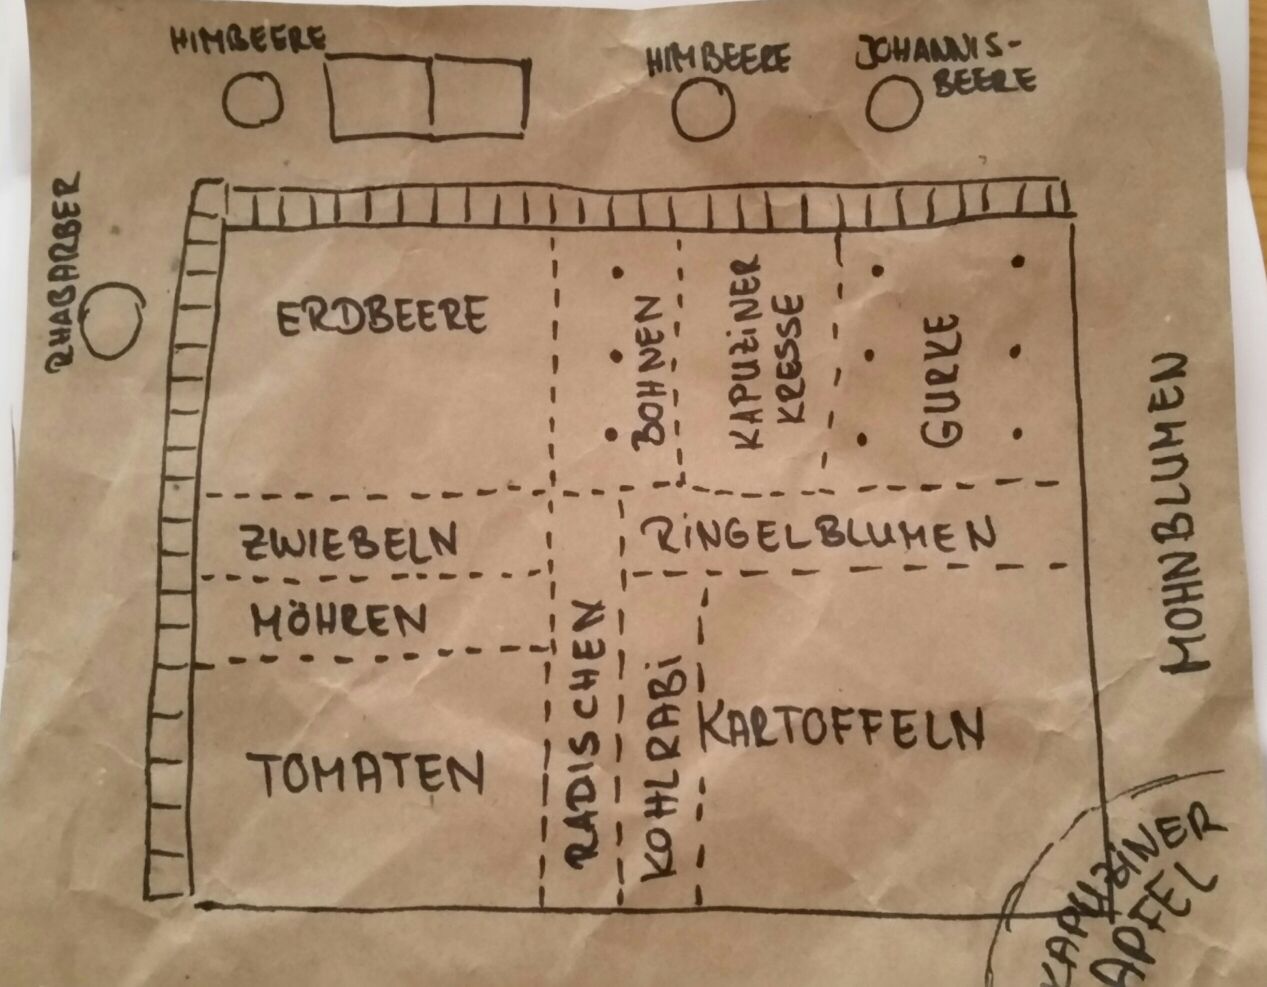 HIMBEERE
HIMBEERE
JOHANNIS-
BEERE
RHABARBER
ERDBEERE
BOHNEN
KAPUZiNER
KRESSE
GURKE
MOHNBLUMEN
ZWIEBELN
RiNGELBLUMEN
MÖHREN
TOMATEN
RADISCHEN
KOHLRABi
KARTOFFELN
KAPUZiNER
APFEL